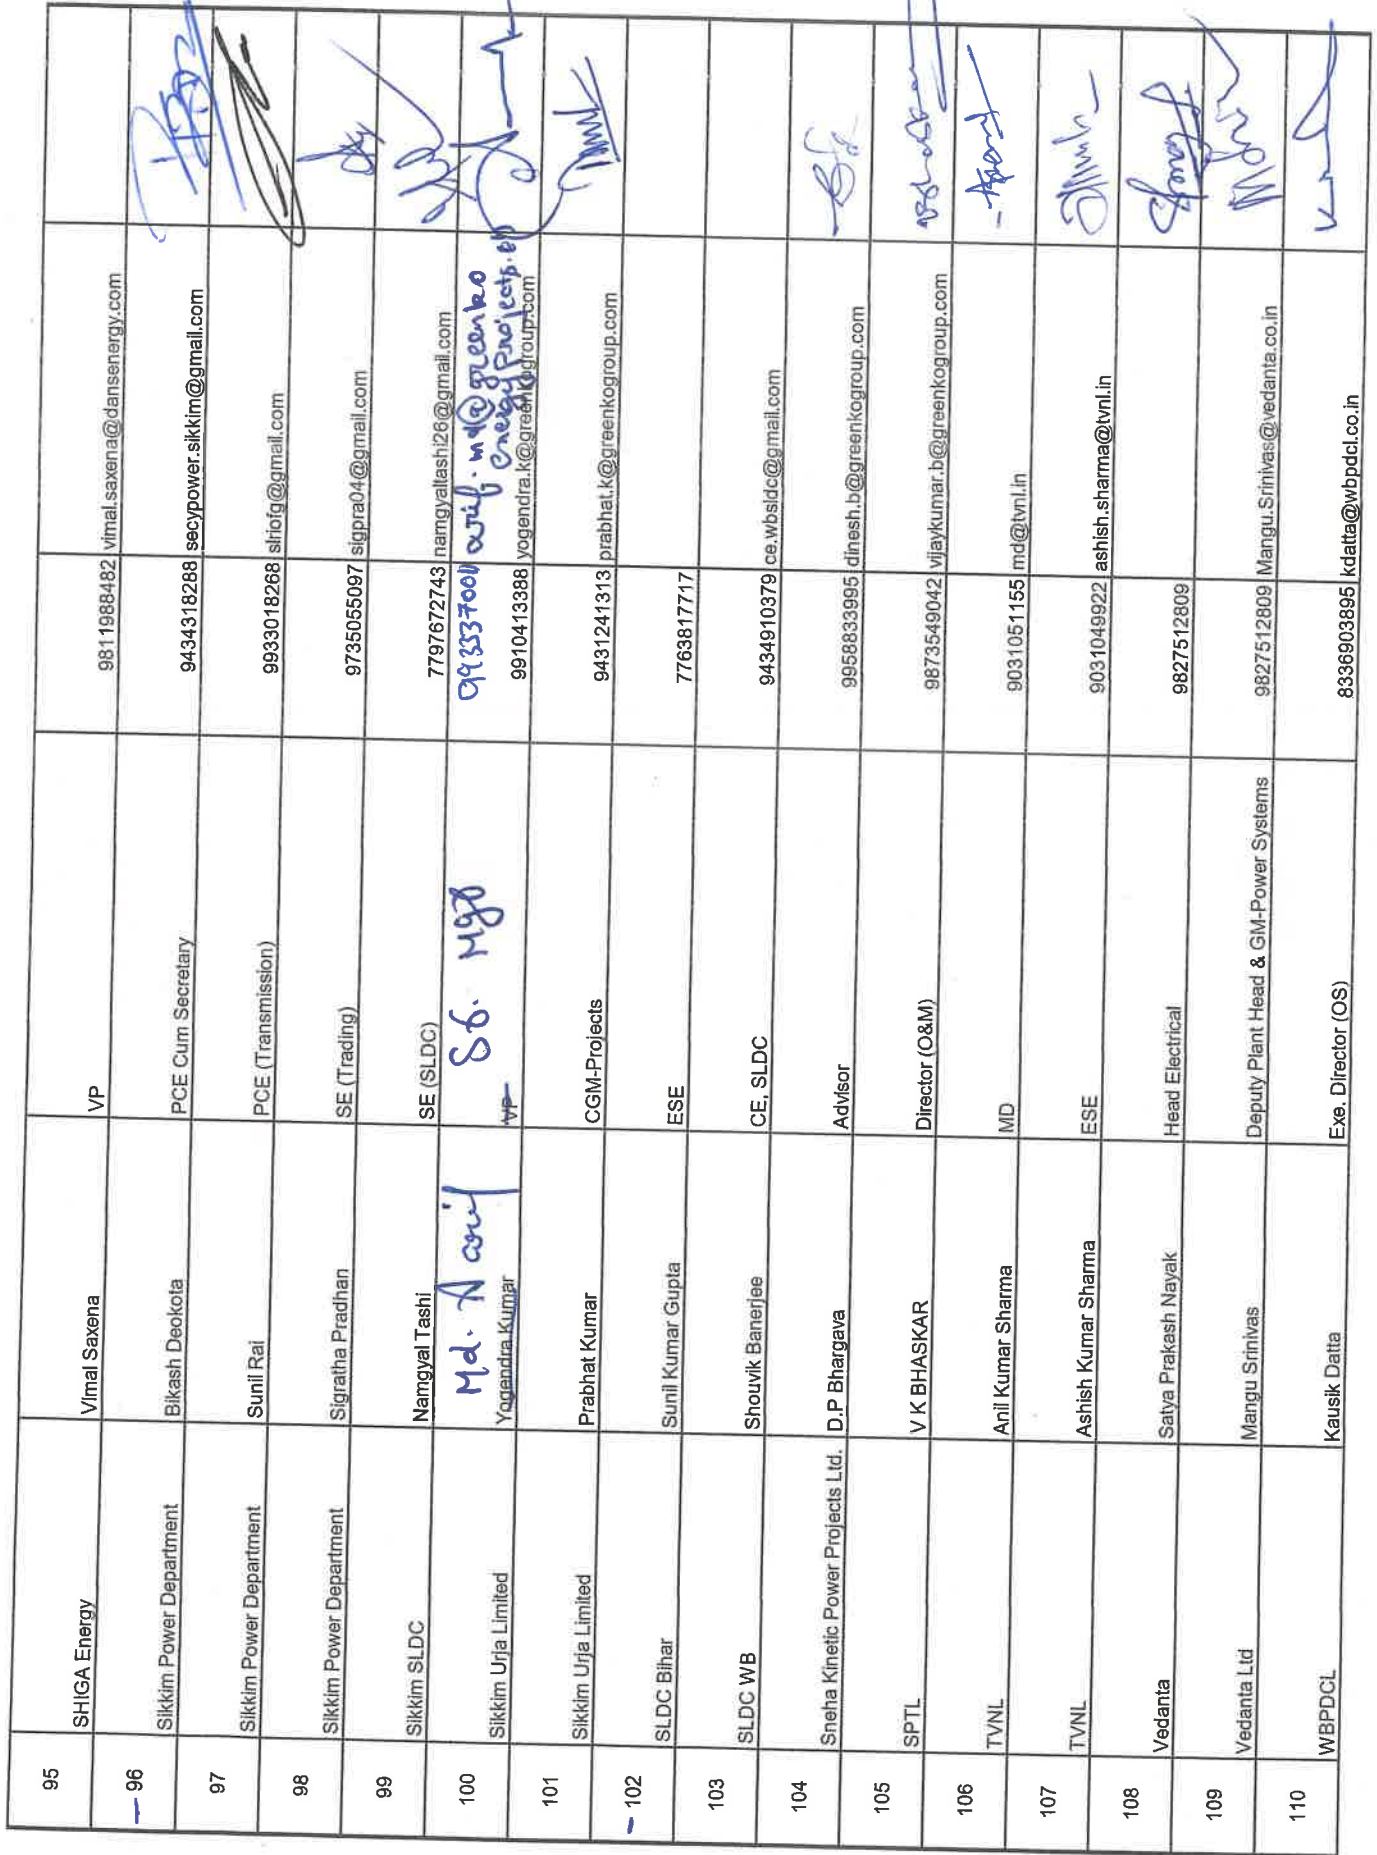 95 SHIGA Energy Vimal Saxena VP 9811988482 vimal.saxena@dansenergy.com
– 96 Sikkim Power Department Bikash Deokota PCE Cum Secretary 9434318288 secypower.sikkim@gmail.com
97 Sikkim Power Department Sunil Rai PCE (Transmission) 9933018268 slriofg@gmail.com
98 Sikkim Power Department Sigratha Pradhan SE (Trading) 9735055097 sigpra04@gmail.com
99 Sikkim SLDC Namgyal Tashi SE (SLDC) 7797672743 namgyaltashi26@gmail.com
Md. Arif Sr. Mgr arif.md@greenko
energyprojects.
100 Sikkim Urja Limited Yogendra Kumar VP 9910413388 yogendra.k@greenkogroup.com
101 Sikkim Urja Limited Prabhat Kumar CGM-Projects 94312241313 prabhat.k@greenkogroup.com
– 102 SLDC Bihar Sunil Kumar Gupta ESE 7763817717
103 SLDC WB Shouvik Banerjee CE, SLDC 9434910379 ce.wbsldc@gmail.com
104 Sneha Kinetic Power Projects Ltd. D.P Bhargava Advisor 9958833995 dinesh.b@greenkogroup.com
105 SPTL V K BHASKAR Director (O&M) 9873549042 vijaykumar.b@greenkogroup.com
106 TVNL Anil Kumar Sharma MD 9031051155 md@tvnl.in
107 TVNL Ashish Kumar Sharma ESE 9031049922 ashish.sharma@tvnl.in
108 Vedanta Satya Prakash Nayak Head Electrical 9827512809
109 Vedanta Ltd Mangu Srinivas Deputy Plant Head & GM-Power Systems 9827512809 Mangu.Srinivas@vedanta.co.in
110 WBPDCL Kausik Datta Exe. Director (OS) 8336903895 kdatta@wbpdcl.co.in